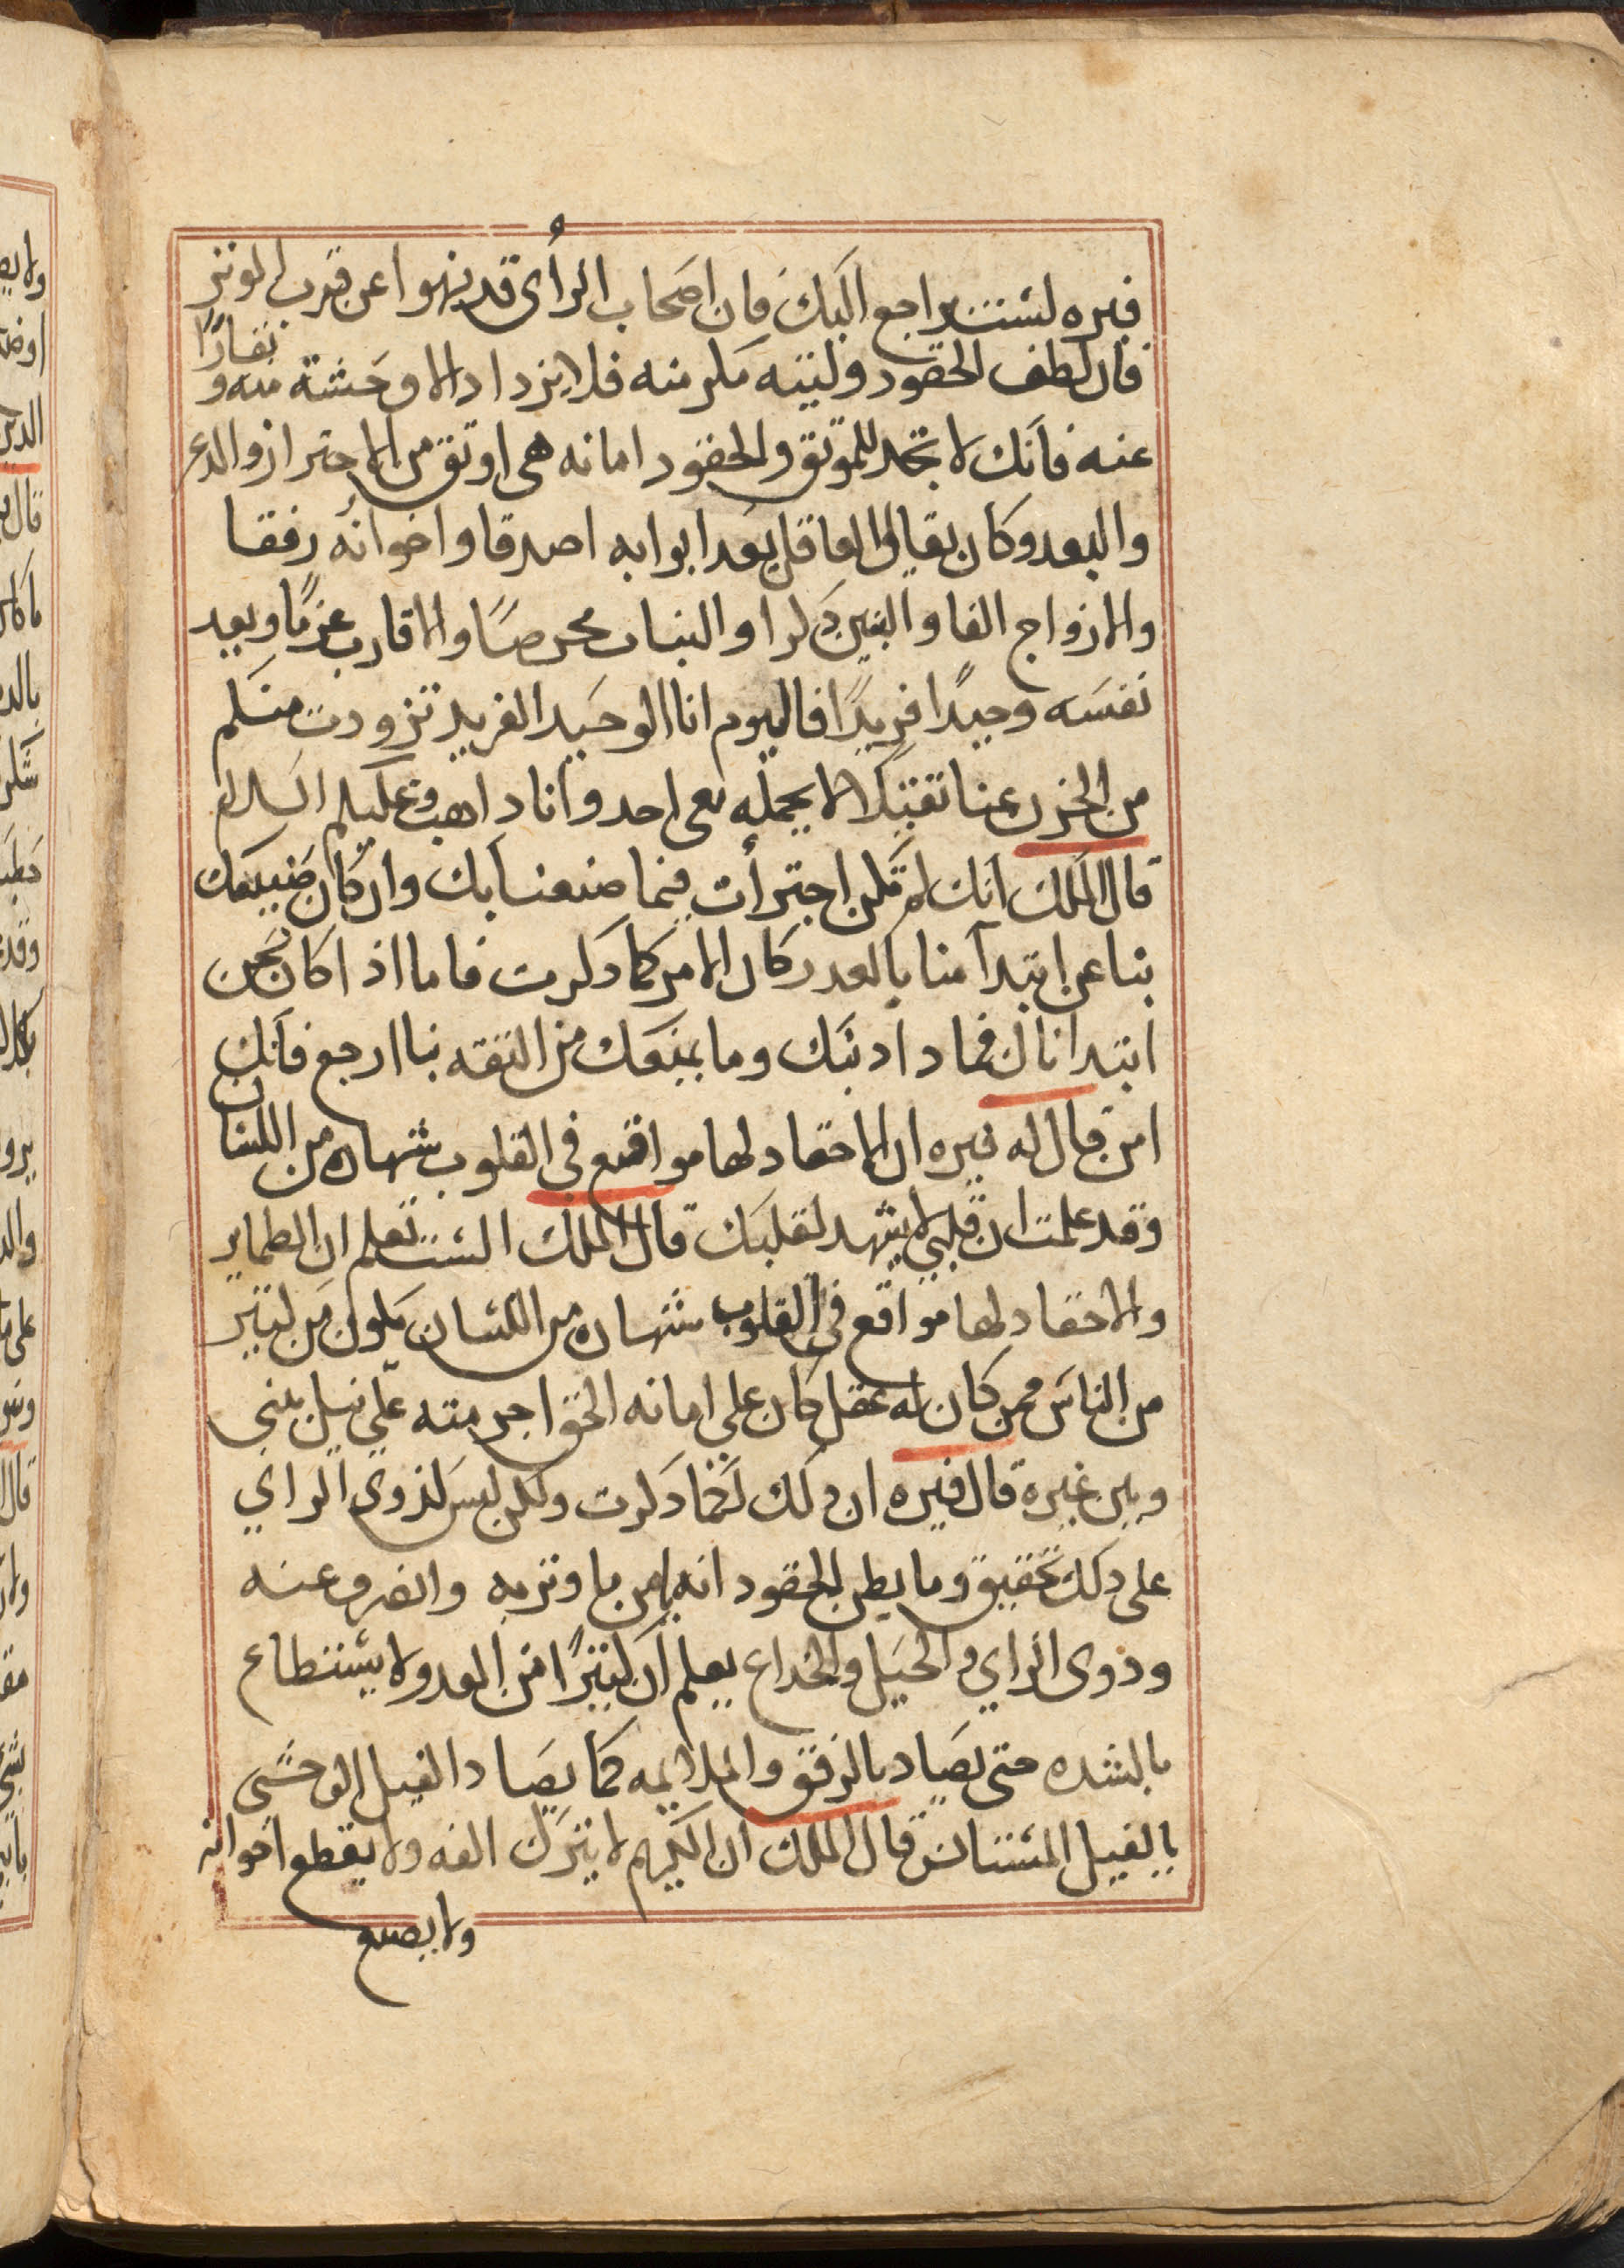 فيره لست براجع اليك فان اصحاب الرأى قد نهوا عن قرب الموتر
فان لطف الحقود ولينه مكر منه فلا يزداد الا وحشة منه ونفارًا
عنه فانك لا تجد للموتق والحقود امانه هى اوثق من الاحتراز والذعر
والبعد وكان يقال العاقل يعد ابوابه اصدقا واخوانه رفقا
والازواج الفا والبنين ذكرا والبنات محرصًا والاقارب غرمًا ويعد
نفسه وحيدًا فريدًا فاليوم انا الوحيد الفريد تزودت منكم
من الحزن عنا تقيلا لا يحمله معى احد وانا داهب وعليكم السلام
قال الملك انك لو لم تكن اجترأت فيما صنعنا بك وان كان صنيعك
بنا عن ابتدآ منا بالغدر كان الامر كما دكرت فاما اذا كان نحن
ابتدانا لك فما دا دنبك وما يمنعك من الثقه بنا ارجع فانك
امن قال له فيره ان الاحقاد لها مواقع فى القلوب شهاده من اللسان
وقد علمت ان قلبي لا يشهد لقلبك قال الملك الست تعلم ان الضماير
والاحقاد لها مواقع في القلوب شهاده من اللسان يكون من كتير
من الناس فمن كان له عقل كان على امانه الحق اجر منته علي نيل بيني
وبين غيرة قال فيره ان ذلك لكما دكرت ولكن ليس لذوى الراي
على دلك تحقيق وما يظن الحقود انه يامن ما وتر به وانصرف عنه
وذوى الراي والحيل والخداع يعلم ان كتيرًا من العدو لا يستطاع
بالشده حتى يصاد بالرفق والملايمه كما يصاد الفيل الوحشي
بالفيل المستانس قال الملك ان الكريم لا يترك الفه ولا يقطع اخوانه
ولا يضيع